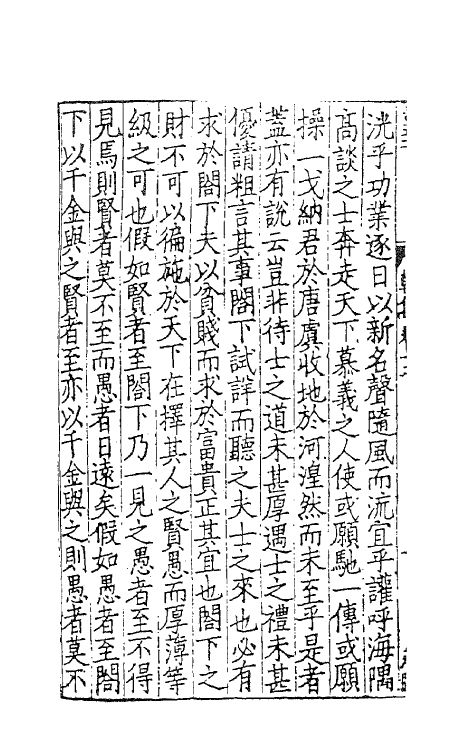 洸乎功業逐日以新名聲隨風而流宜乎讙呼海隅
高談之士奔走天下慕義之人使或願馳一傳或願
操一戈納君於唐虞收地於河湟然而未至乎是者
蓋亦有說云豈非待士之道未甚厚遇士之禮未甚
優請粗言其事閤下試詳而聽之夫士之來也必有
求於閤下夫以貧賤而求於富貴正其宜也閤下之
財不可以徧施於天下在擇其人之賢愚而厚薄等
級之可也假如賢者至閤下乃一見之愚者至不得
見焉則賢者莫不至而愚者日遠矣假如愚者至閤
下以千金與之賢者至亦以千金與之則愚者莫不